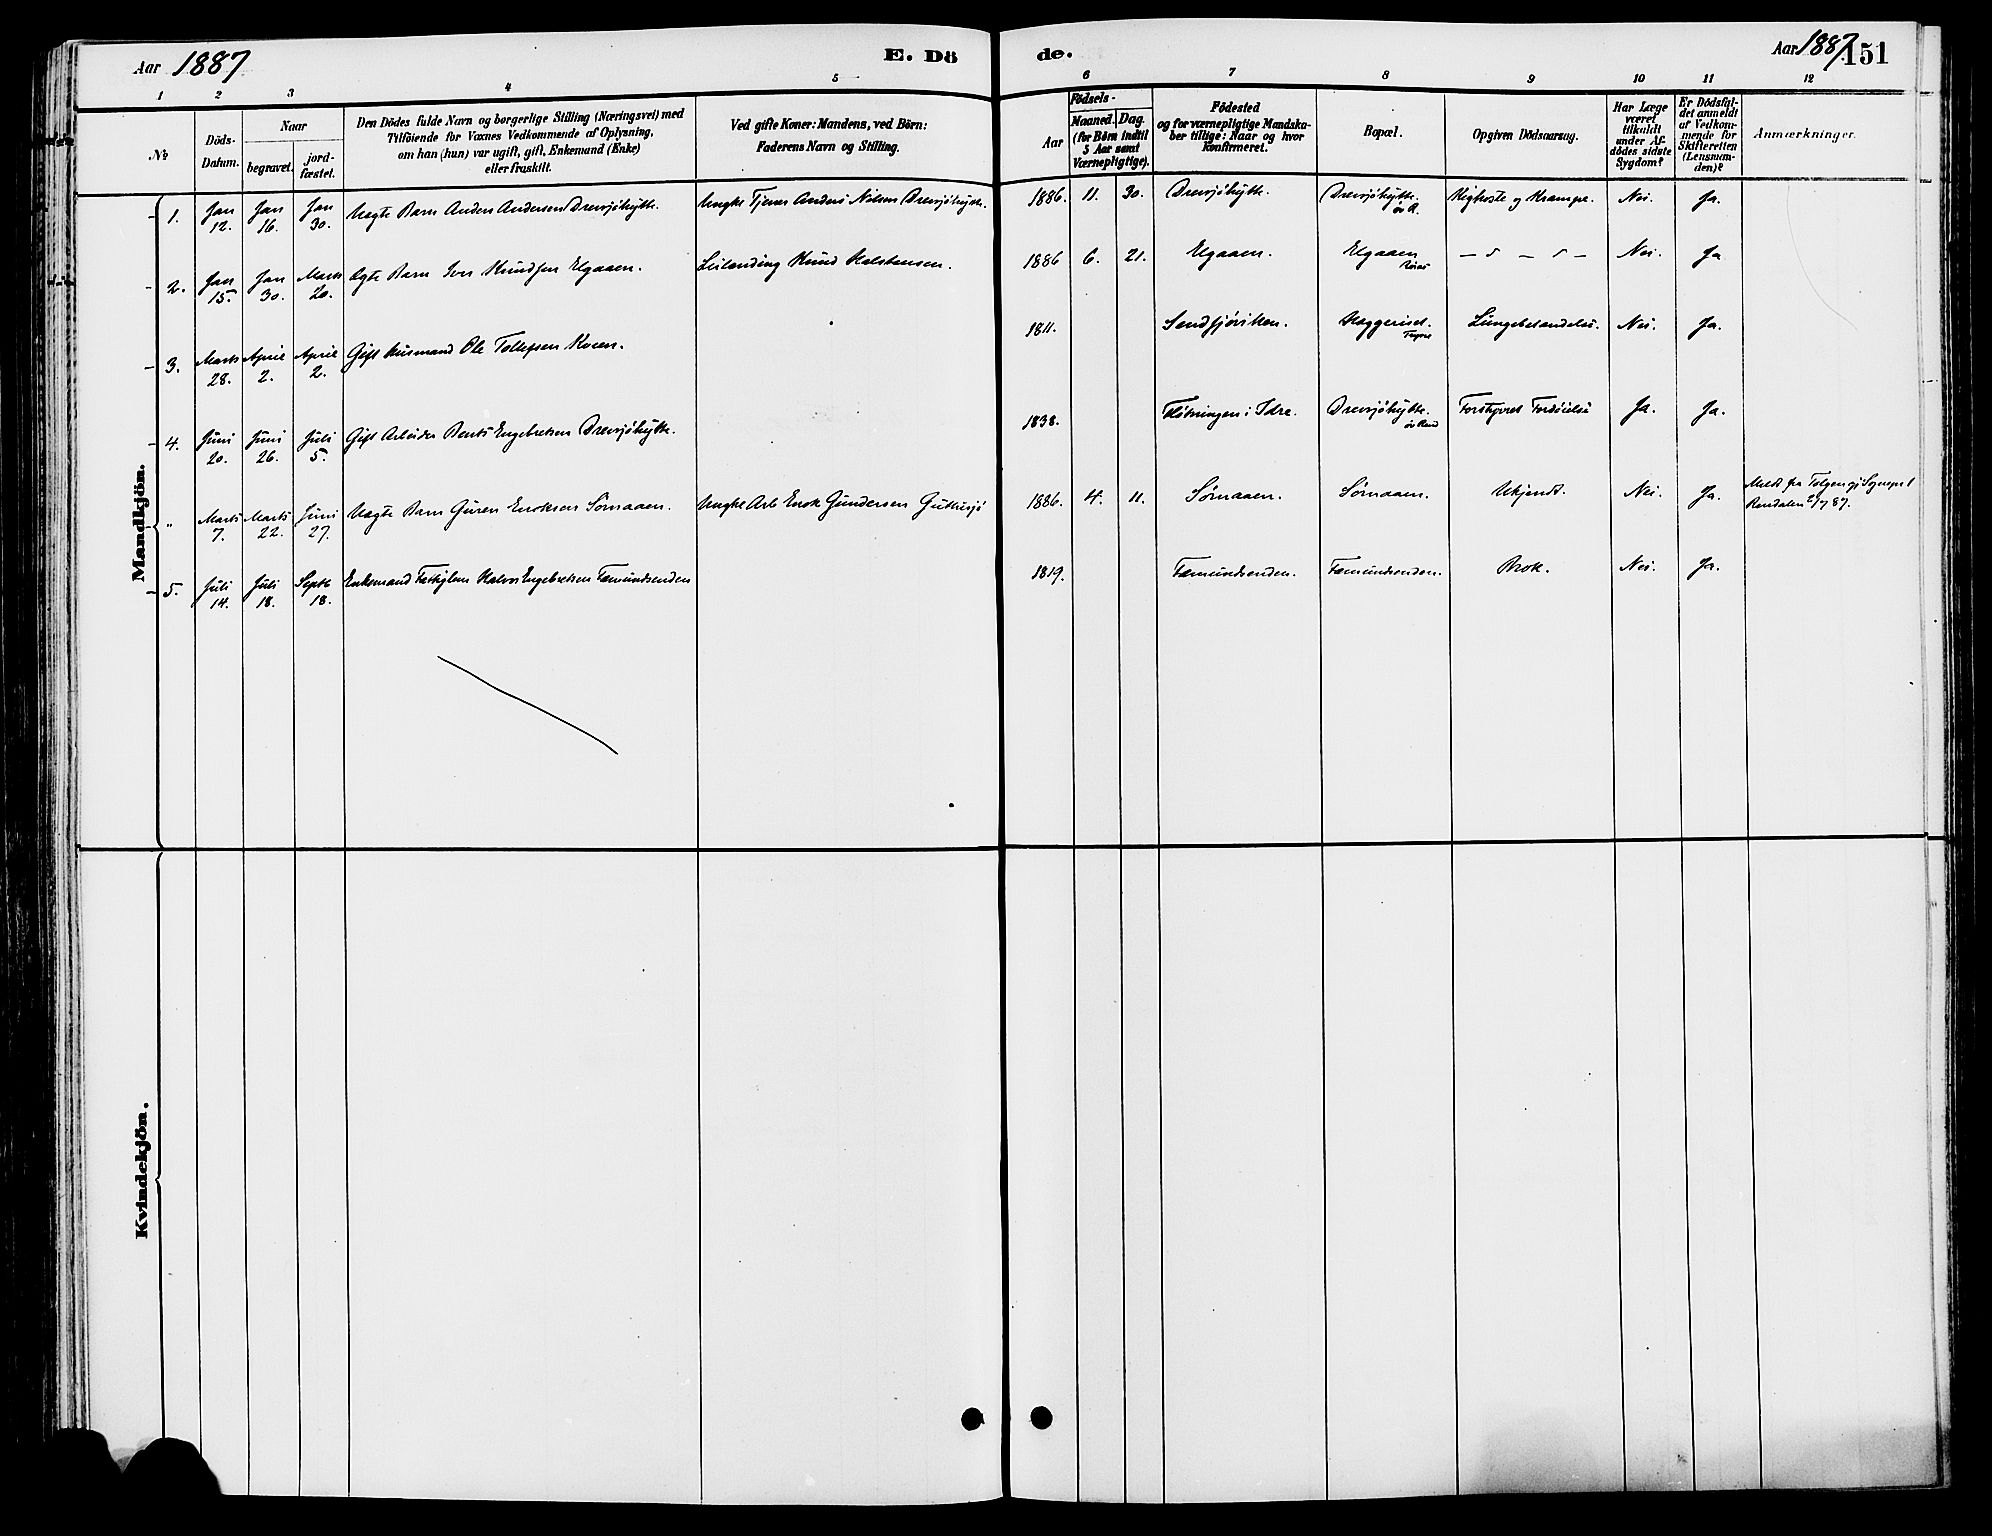 Aar 1887
E. Dö
de.
Aar 1887. 151
1 2 3 4 5 6 7 8 9 10 11 12
№
Döds-
Datum.
Naar
begravet.
jord-
fæstet.
Den Dödes fulde Navn og borgerlige Stilling (Næringsvei) med
Tilföiende for Voxnes Vedkommende af Oplysning,
om han (hun) var ugift, gift, Enkemand (Enke)
eller fraskilt.
Ved gifte Koner: Mandens, ved Börn:
Faderens Navn og Stilling.
Födsels-
Aar
Maaned. Dag.
(for Börn indtil
5 Aar samt
Værnepligtige).
Födested
og for værnepligtige Mandska-
ber tillige: Naar og hvor
konfirmeret.
Bopæl.
Opgiven Dödsaarsag.
Har Læge
været
tilkaldt
under Af-
dödes sidste
Sygdom?
Er Dödsfal-
det anmeldt
af Vedkom-
mende for
Skifteretten
(Lensman-
den)?
Anmærkninger.
Mandkjön.
1. Jan 12. Jan 16. Jan 30. Uægte Barn Anders Andersen Drevsjöhytte. Ungk Tjener Anders Nilsen Drevsjöhytte. 1886. 11. 30. Drevsjöhytte. Drevsjöhytte. Kighoste og Krampe. Nei. Ja.
2. Jan 15. Jan 30. Marts 20. Ægte Barn Iver Knudsen Elgaaen. Leilending Knud Halstensen. 1886 6. 21. Elgaaen. Elgaaen Røros Nei. Ja
3. Marts 28. April 2. April 2. Gift Husmand Ole Tollefsen Moen. 1811. Sendsjøviken. Haggeriset. Trysil Lungebetændelse. Nei. Ja.
4. Juni 20. Juni 26. Juli 5. Gift Arbeider Bernts Engebretsen Drevsjöhytte. 1838. Fløtningen i Idre. Drevsjöhytte. øv Rend Forstyrret Fordöielse Ja. Ja.
" Marts 7. Marts 22. Juni 27. Uægte Barn Guren Eroksen Sømaaen. Ungk Arb Erok Gundersen Guthusjö 1886. 4. 11. Sømaaen. Sømaaen. Ukjendt. Nei. Ja. Meldt fra Tolgen gj Sognepr i
Rendalen 27/7 87.
5. Juli 14. Juli 18. Septb 18. Enkemand Fattiglem Halvor Engebretsen Fæmundsenden 1819. Fæmundsenden. Fæmundsenden. Brok. Nei. Ja.
Kvindekjön.